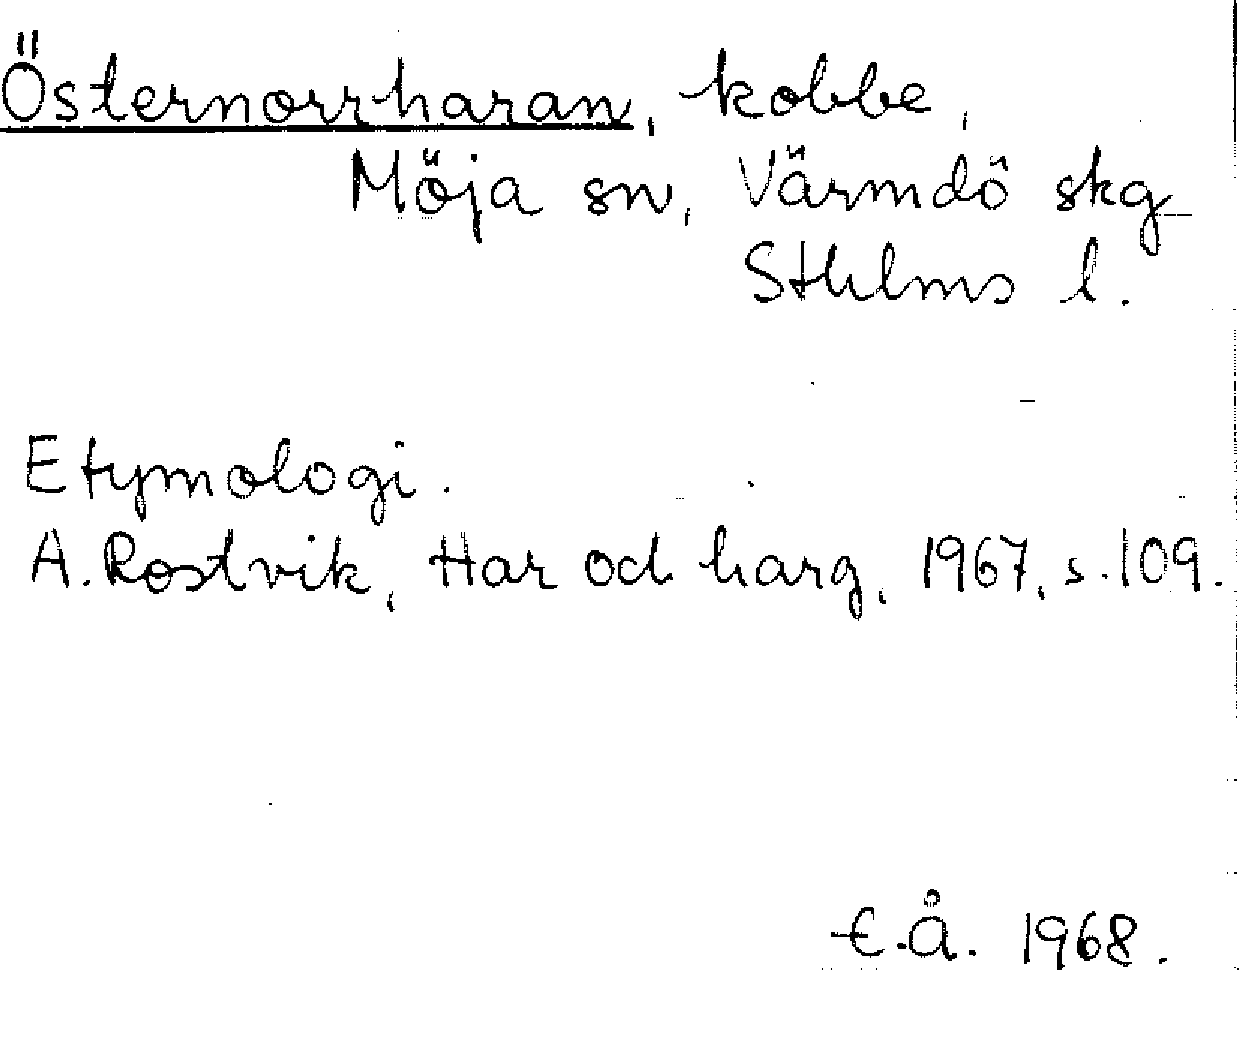 Östernorrharan, kobbe,
Möja sn, Värmdö skg
Sthlms l.
Etymologi.
A. Rostvik, Har och harg, 1967, s. 109.
E.Å. 1968.